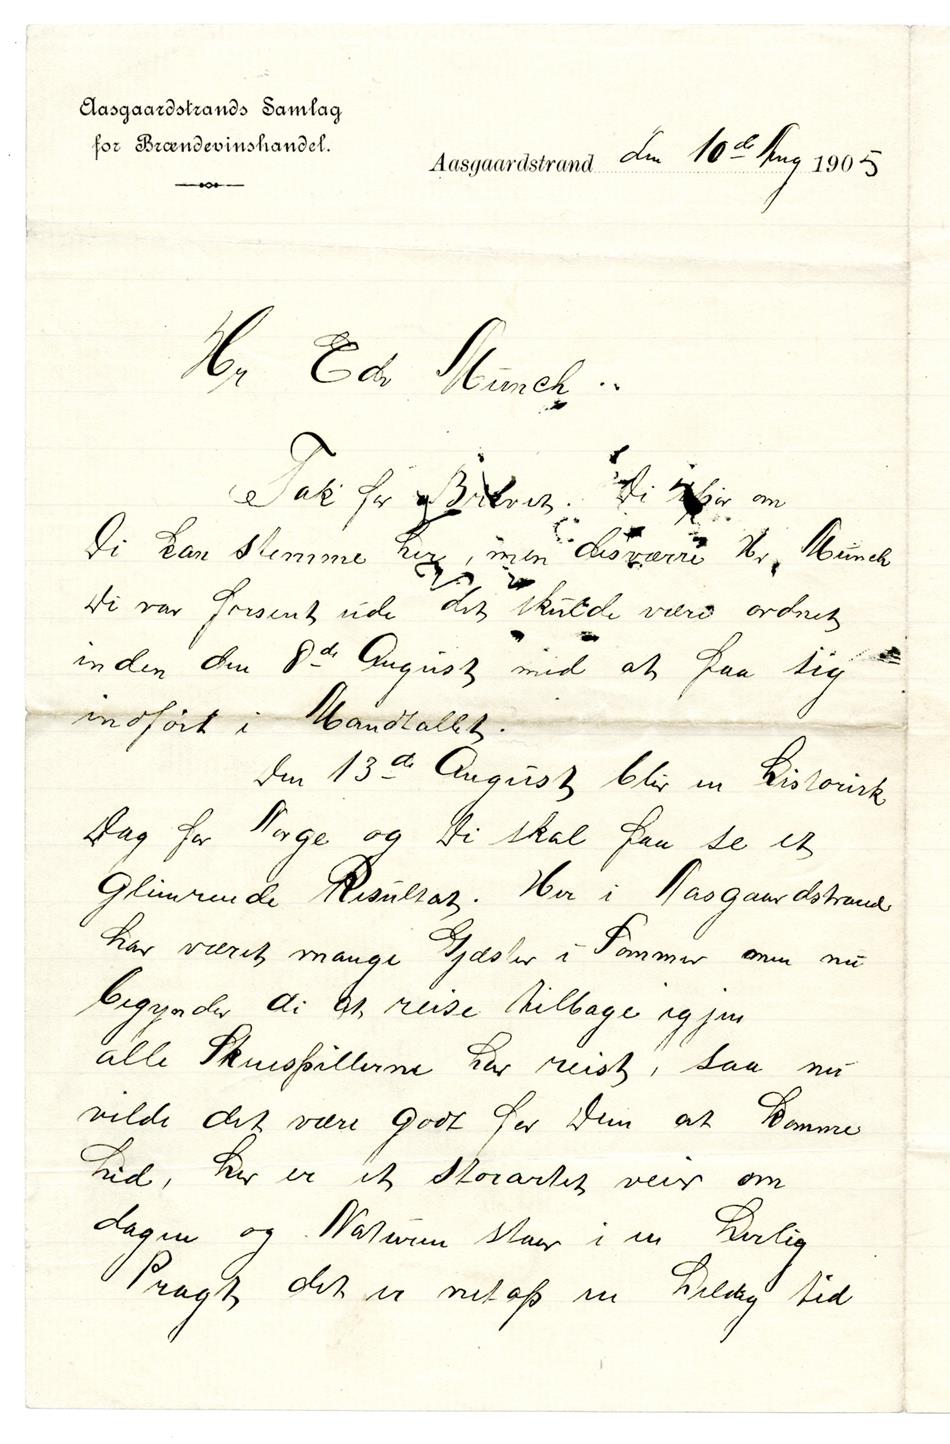 Aasgaardstrands Samlag
for Brændevinshandel.
Aasgaardstrand den 10de Aug 1905
Hr Edv Munch..
Tak for Brevet. Di spør om
Di kan stemme her, men desværre Hr, Munch
Di var forsent ude det skulde være ordnet
inden den 8de August med at faa sig
indført i Mandtallet.
Den 13de August blir en historisk
Dag for Norge og Di skal faa se et
Glimrende Resultat. Her i Aasgaardstrand
har været mange Gjæster i Sommer men nu
begynder di at reise tilbage igjen
alle Skuespillerne har reist, saa nu
vilde det være godt for Dem at komme
hid, her er et storartet veir om
dagen og Naturen staar i en herlig
Pragt, det er netop en heldig tid